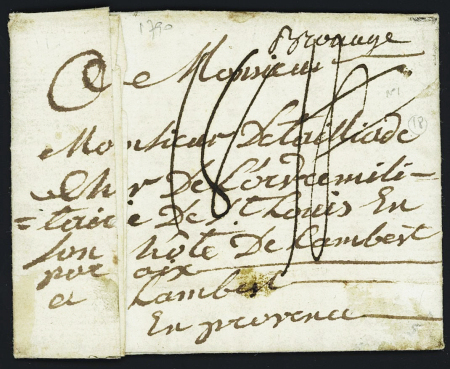 1790
Brouage
A Monsieur
Monsieur Detailliade
Chr De Lordremili-
=taire De St Louis En
son hôte De Lambert
par aix
a Lambert
En provence